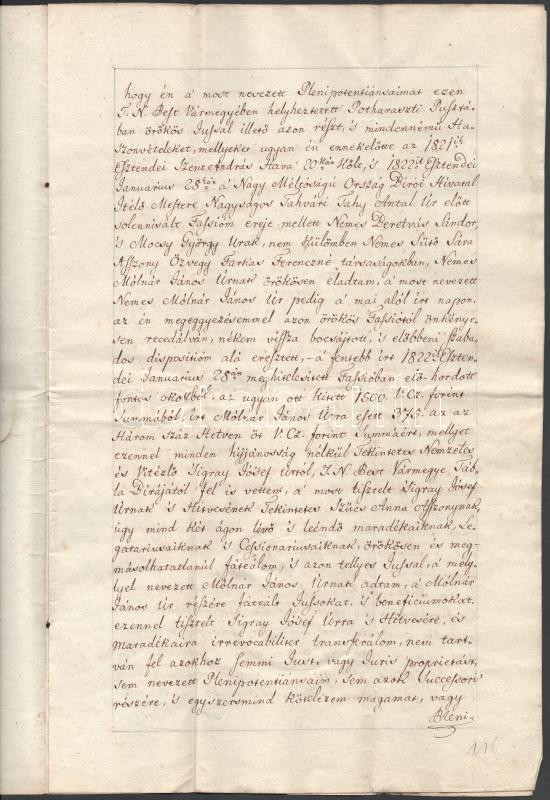 hogy én a most nevezett Plenipotentiánsaimat ezen
T. N. Pest Vármegyében helyheztetett Potharaszti Pusztá-
ban örökös Jussal illető azon részt, 's mindennémű Ha-
szonvételeket, mellyeket ugyan én ennekelőtte az 1821ik
Esztendei Szent András Hava' 20kán költ, 's 1822ik Esztendei
Januarius 28kán a' Nagy Méltóságú Ország Birói Hivatal
Itélő Mestere Nagyságos Tahvári Tahy Antal Úr előtt
solennisált Fassióm ereje mellett Nemes Deretvás Sándor,
's Mocsy György Urak, nem külömben Nemes Sütő Sára
Asszony Özvegy Farkas Ferenczné társaságokban, Nemes
Mólnár János Úrnak örökösen eladtam, a' most nevezett
Nemes Mólnár János Úr pedig a' mai alól irt napon,
az én megeggyezésemmel azon örökös Fassiótól önkénye-
sen recedálván, nékem vissza bocsájtott, 's előbbeni szaba-
dos dispositióm alá eresztett, – a' fentebb irt 1822ik Eszten-
dei Januarius 28án meghitelesített Fassióban elő-hordott
fontos okokból, az ugyan ott kitett 1500 V. Cz. forint
Summából, írt Mólnár János Úrra esett 375. az az
Három Száz Hetven öt V. Cz. forint Summáért, mellyet
ezennel minden híjjánosság nélkűl Tekintetes Nemzetes
és Vitézlő Sigray Jósef Úrtól, T. N. Pest Vármegye Táb-
la Birájától fel is vettem, a' most tisztelt Sigray Jósef
Úrnak 's Hitvesének Tekintetes Szücs Anna Asszonynak,
úgy mind két ágon lévő 's leéndő maradékaiknak, Le-
gatariusaiknak 's Cessionariusaiknak, örökösen és meg-
másolhatatlanúl fáteálom, 's azon tellyes Jussal, a' mely-
lyel nevezett Mólnár János Úrnak adtam, a' Mólnár
János Úr részére fáteált Jussokat, 's beneficiumokat,
ezennel tisztelt Sigray Jósef Úrra 's Hitvesére, és
maradékaira irrevocabiliter transferálom, nem tart-
ván fel azokhoz semmi Just, vagy Juris proprietást,
sem nevezett Plenipotentiánsaim, sem azok Successori
részére, 's egyszersmind kötelezem magamat, vagy
Pleni-
116